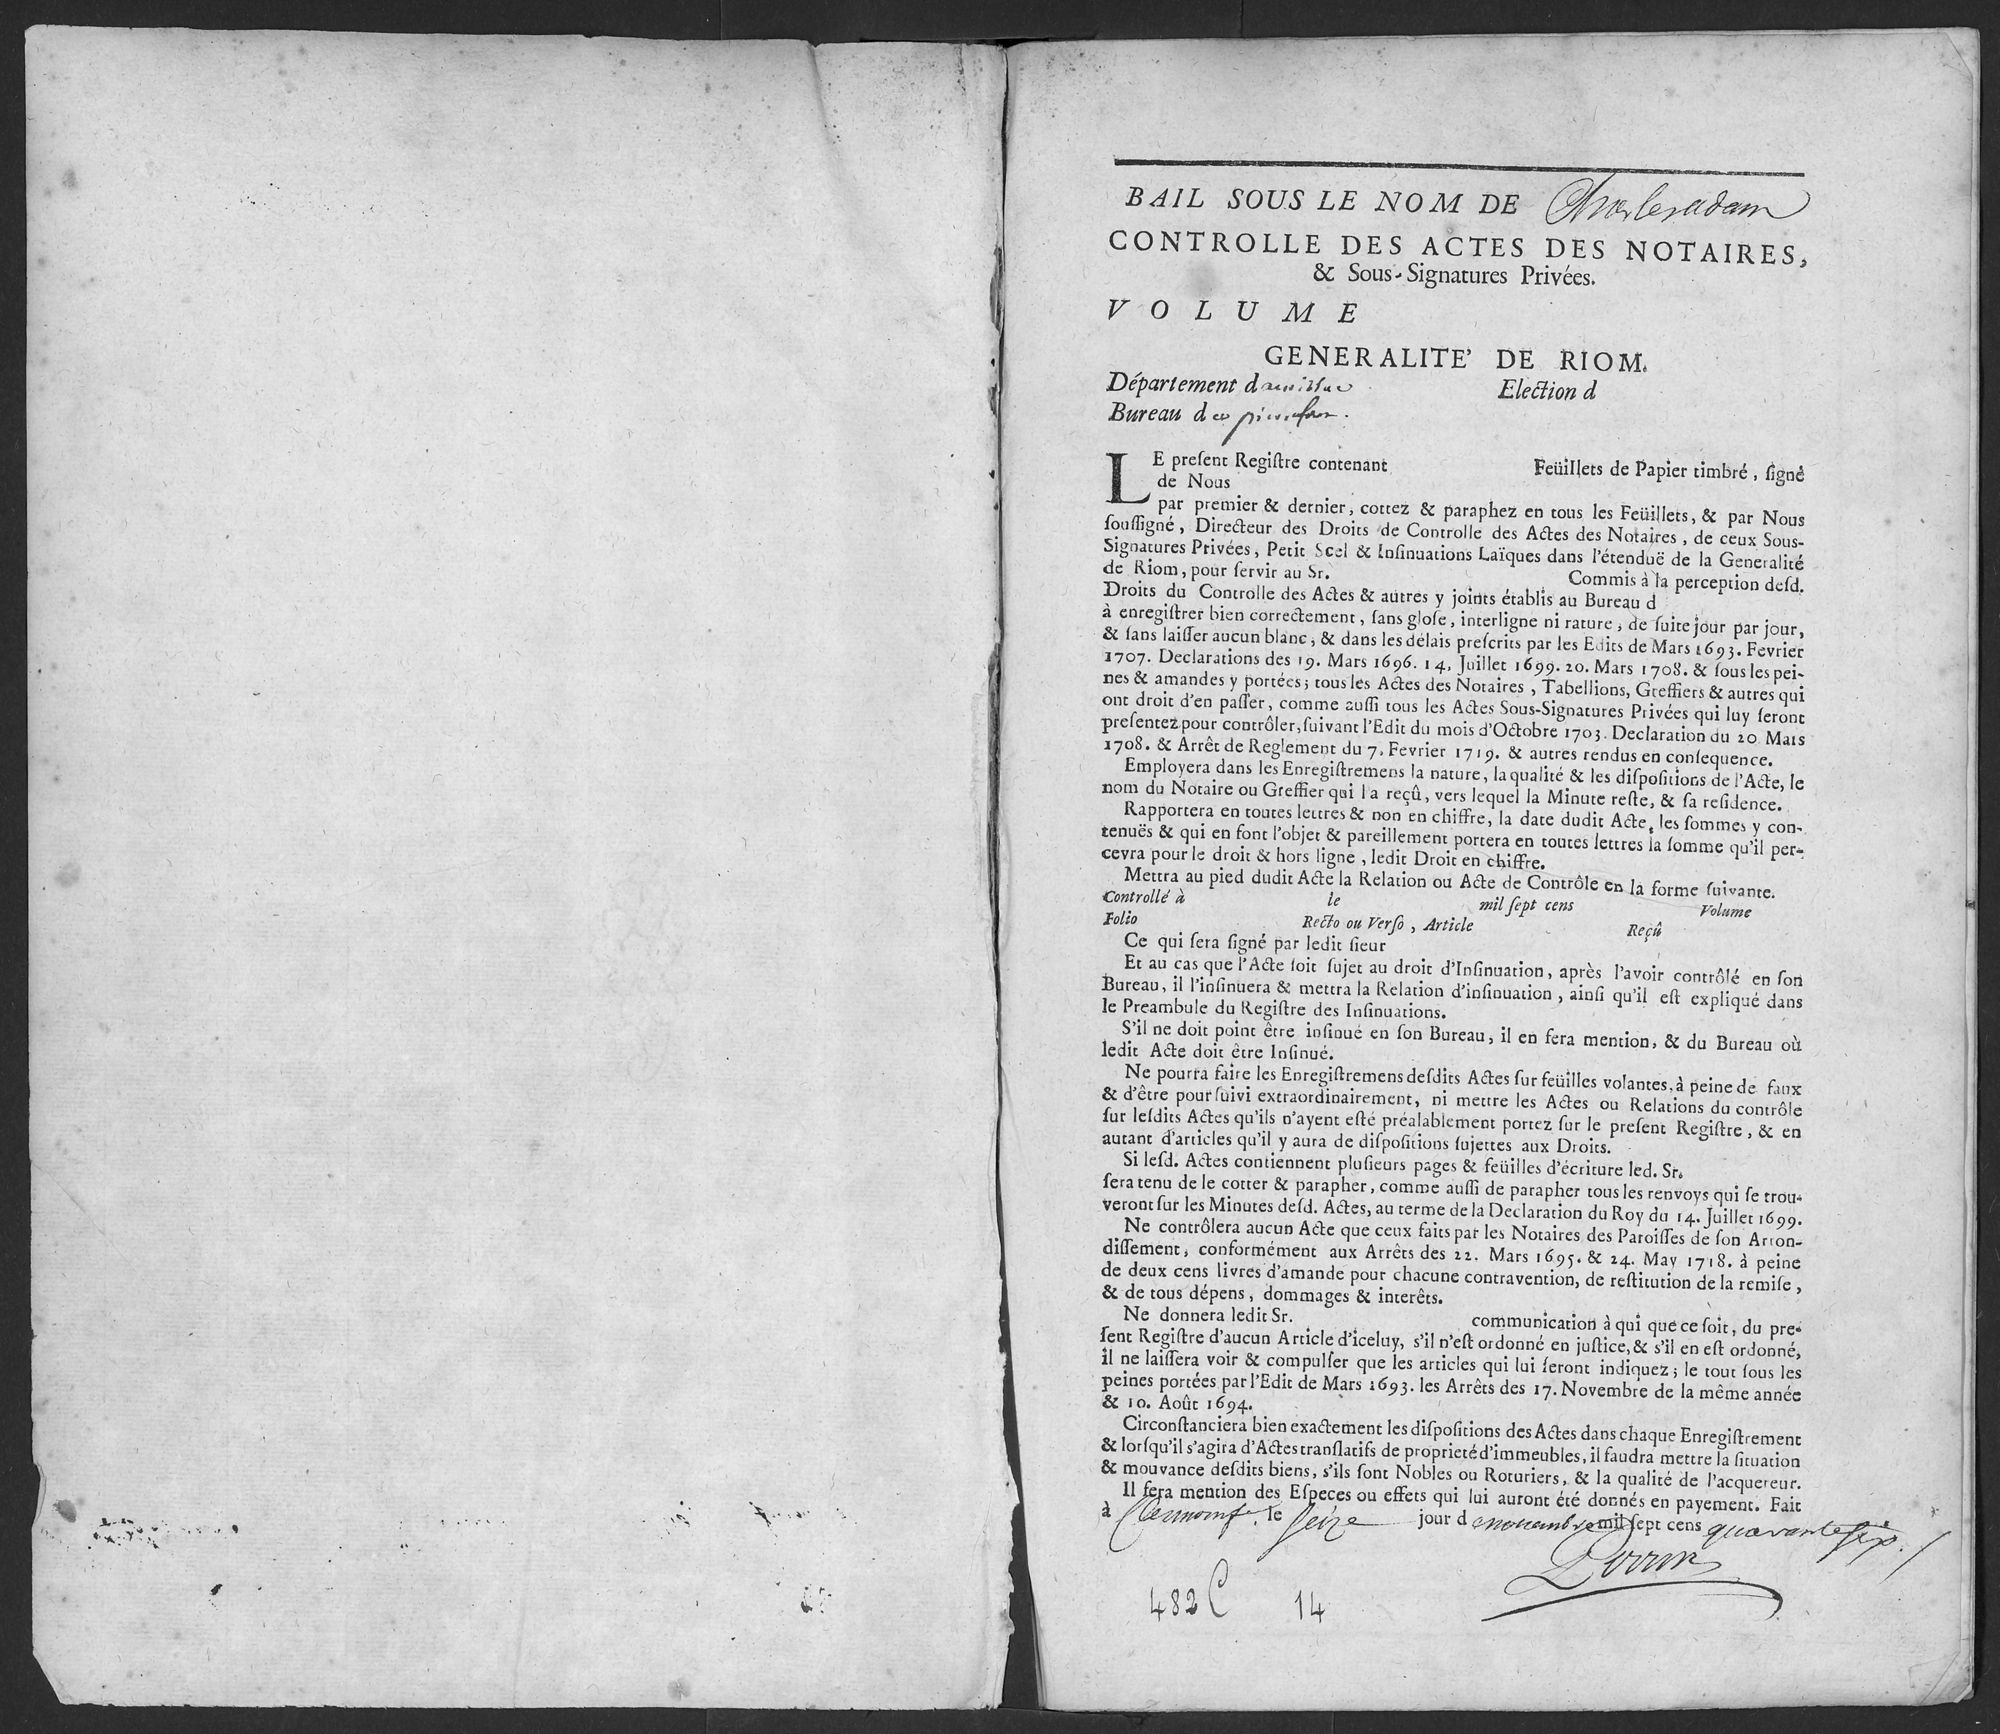 BAIL SOUS LE NOM DE Charles adam
CONTROLLE DES ACTES DES NOTAIRES,
& Sous-Signatures Privées.
VOLUME
GENERALITE' DE RIOM.
Département d Election d
Bureau de
LE preſent Regiſtre contenant Feüillets de Papier timbré, ſigné
de Nous
par premier & dernier, cottez & paraphez en tous les Feüillets, & par Nous
ſouſſigné, Directeur des Droits de Controlle des Actes des Notaires, de ceux Sous-
Signatures Privées, Petit Scel & Inſinuations Laïques dans l'étenduë de la Generalité
de Riom, pour ſervir au Sr. Commis à la perception deſd.
Droits du Controlle des Actes & autres y joints établis au Bureau d
à enregiſtrer bien correctement, ſans gloſe, interligne ni rature, de ſuite jour par jour,
& ſans laiſſer aucun blanc, & dans les délais preſcrits par les Edits de Mars 1693. Fevrier
1707. Declarations des 19. Mars 1696. 14. Juillet 1699. 20. Mars 1708. & ſous les pei-
nes & amandes y portées; tous les Actes des Notaires, Tabellions, Greffiers & autres qui
ont droit d'en paſſer, comme auſſi tous les Actes Sous-Signatures Privées qui luy ſeront
preſentez pour contrôler, ſuivant l'Edit du mois d'Octobre 1703. Declaration du 20 Mars
1708. & Arrêt de Reglement du 7. Fevrier 1719. & autres rendus en conſequence.
Employera dans les Enregiſtremens la nature, la qualité & les diſpoſitions de l'Acte, le
nom du Notaire ou Greffier qui la reçû, vers lequel la Minute reſte, & ſa reſidence.
Rapportera en toutes lettres & non en chiffre, la date dudit Acte, les ſommes y con-
tenuës & qui en font l'objet & pareillement portera en toutes lettres la ſomme qu'il per-
cevra pour le droit & hors ligne, ledit Droit en chiffre.
Mettra au pied dudit Acte la Relation ou Acte de Contrôle en la forme ſuivante.
Controllé à le mil ſept cens Volume
Folio Recto ou Verſo, Article Reçû
Ce qui ſera ſigné par ledit ſieur
Et au cas que l'Acte ſoit ſujet au droit d'Inſinuation, après l'avoir contrôlé en ſon
Bureau, il l'inſinuera & mettra la Relation d'inſinuation, ainſi qu'il eſt expliqué dans
le Preambule du Regiſtre des Inſinuations.
S'il ne doit point être inſinué en ſon Bureau, il en fera mention, & du Bureau où
ledit Acte doit être Inſinué.
Ne pourra faire les Enregiſtremens deſdits Actes ſur feüilles volantes, à peine de faux
& d'être pourſuivi extraordinairement, ni mettre les Actes ou Relations du contrôle
ſur leſdits Actes qu'ils n'ayent eſté préalablement portez ſur le preſent Regiſtre, & en
autant d'articles qu'il y aura de diſpoſitions ſujettes aux Droits.
Si leſd. Actes contiennent pluſieurs pages & feüilles d'écriture led. Sr.
ſera tenu de le cotter & parapher, comme auſſi de parapher tous les renvoys qui ſe trou-
veront ſur les Minutes deſd. Actes, au terme de la Declaration du Roy du 14. Juillet 1699.
Ne contrôlera aucun Acte que ceux faits par les Notaires des Paroiſſes de ſon Arron-
diſſement, conformément aux Arrêts des 22. Mars 1695. & 24. May 1718. à peine
de deux cens livres d'amande pour chacune contravention, de reſtitution de la remiſe,
& de tous dépens, dommages & interêts.
Ne donnera ledit Sr. communication à qui que ce ſoit, du pre-
ſent Regiſtre d'aucun Article d'iceluy, s'il n'eſt ordonné en juſtice, & s'il en eſt ordonné,
il ne laiſſera voir & compulſer que les articles qui lui ſeront indiquez; le tout ſous les
peines portées par l'Edit de Mars 1693. les Arrêts des 17. Novembre de la même année
& 10. Août 1694.
Circonſtanciera bien exactement les diſpoſitions des Actes dans chaque Enregiſtrement
& lorſqu'il s'agira d'Actes tranſlatifs de proprieté d'immeubles, il faudra mettre la ſituation
& mouvance deſdits biens, s'ils ſont Nobles ou Roturiers, & la qualité de l'acquereur.
Il fera mention des Eſpeces ou effets qui lui auront été donnés en payement. Fait
à Clermont le seize jour de novembre mil ſept cens quarante six.
482 C 14